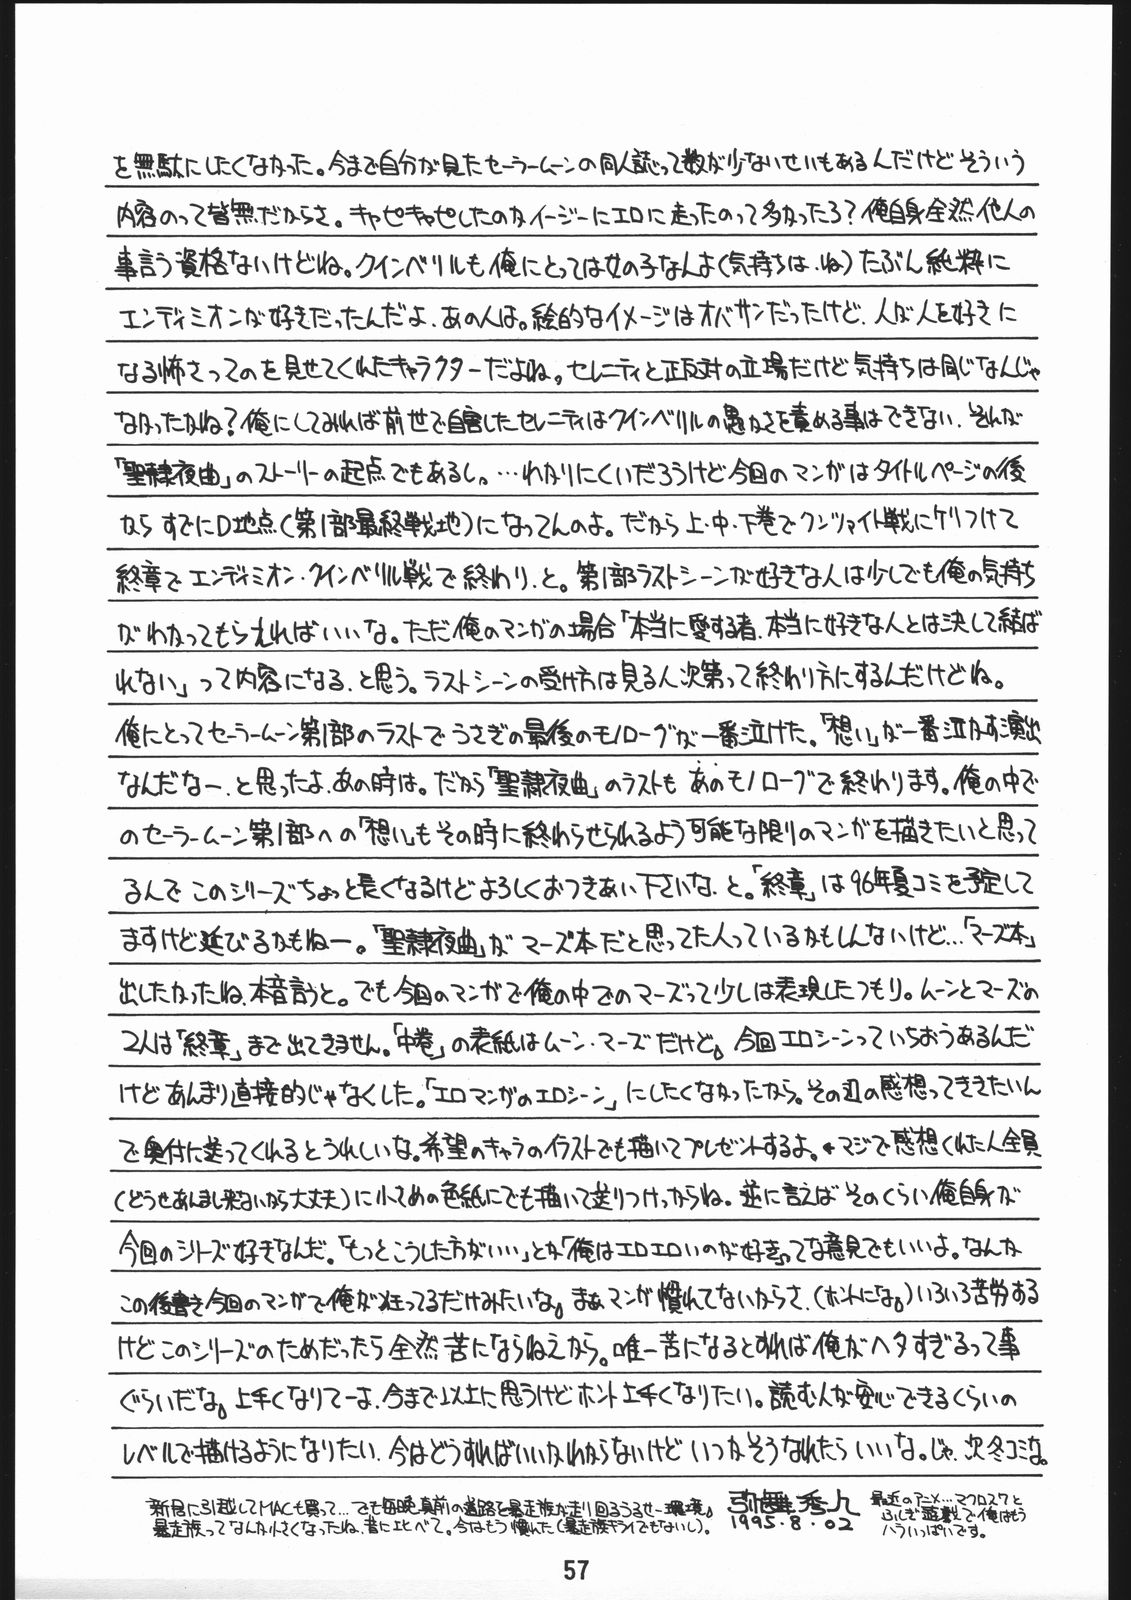 を無駄にしたくなかった。今まで自分が見たセーラームーンの同人誌って数が少ないせいもあるんだけどそういう
内容のって皆無だからさ。キャピキャピしたのかイージーにエロに走ったのって多かったろ?俺自身全然他人の
事言う資格ないけどね。クインベリルも俺にとっては女の子なんよ(気持ちは、ね)たぶん純粋に
エンディミオンが好きだったんだよ、あの人は。絵的なイメージはオバサンだったけど、人が人を好きに
なる怖さってのを見せてくれたキャラクターだよね。セレニティと正反対の立場だけど気持ちは同じなんじゃ
なかったかね?俺にしてみれば前世で自害したセレニティはクインベリルの愚かさを責める事はできない、それが
「聖隷夜曲」のストーリーの起点でもあるし。…わかりにくいだろうけど今回のマンガはタイトルページの後
からすでにD地点(第1部最終戦地)になってんのよ。だから上・中・下巻でクンツァイト戦にケリつけて
終章でエンディミオン・クインベリル戦で終わり、と。第1部ラストシーンが好きな人は少しでも俺の気持ち
がわかってもらえればいいな。ただ俺のマンガの場合「本当に愛する者、本当に好きな人とは決して結ば
れない」って内容になる、と思う。ラストシーンの受け方は見る人次第って終わり方にするんだけどね。
俺にとってセーラームーン第1部のラストでうさぎの最後のモノローグが一番泣けた。「想い」が一番泣かす演出
なんだなー、と思ったよ、あの時は。だから「聖隷夜曲」のラストもあのモノローグで終わります。俺の中で
のセーラームーン第1部への「想い」もその時に終わらせられるよう可能な限りのマンガを描きたいと思って
るんでこのシリーズちょっと長くなるけどよろしくおつきあい下さいな、と。「終章」は96年夏コミを予定して
ますけど延びるかもねー。「聖隷夜曲」がマーズ本だと思ってた人っているかもしんないけど…「マーズ本」
出したかったね、本音言うと。でも今回のマンガで俺の中でのマーズって少しは表現したつもり。ムーンとマーズの
2人は「終章」まで出てきません。「中巻」の表紙はムーン・マーズだけど。今回エロシーンっていちおうあるんだ
けどあんまり直接的じゃなくした。「エロマンガのエロシーン」にしたくなかったから。その辺の感想ってききたいん
で奥付に送ってくれるとうれしいな。希望のキャラのイラストでも描いてプレゼントするよ。←マジで感想くれた人全員
(どうせあんまし来ないから大丈夫)に小さめの色紙にでも描いて送りつけっからね。逆に言えばそのくらい俺自身が
今回のシリーズ好きなんだ。「もっとこうした方がいい」とか「俺はエロエロいのが好き」ってな意見でもいいよ。なんか
この後書き今回のマンガで俺が狂ってるだけみたいな。まぁマンガ慣れてないからさ、(ホントにな。)いろいろ苦労する
けどこのシリーズのためだったら全然苦にならねえから。唯一苦になるとすれば俺がヘタすぎるって事
ぐらいだな。上手くなりてーよ、今まで以上に思うけどホント上手くなりたい。読む人が安心できるくらいの
レベルで描けるようになりたい、今はどうすればいいかわからないけどいつかそうなれたらいいな。じゃ、次冬コミな。
新居に引越してMACも買って…でも毎晩真前の道路を暴走族が走り回るうるせー環境。
暴走族ってなんか小さくなったね、昔に比べて。今はもう慣れた(暴走族キライでもないし)。
1995.8.02
最近のアニメ…マクロス7と
ふしぎ遊戯で俺はもう
ハラいっぱいです。
57